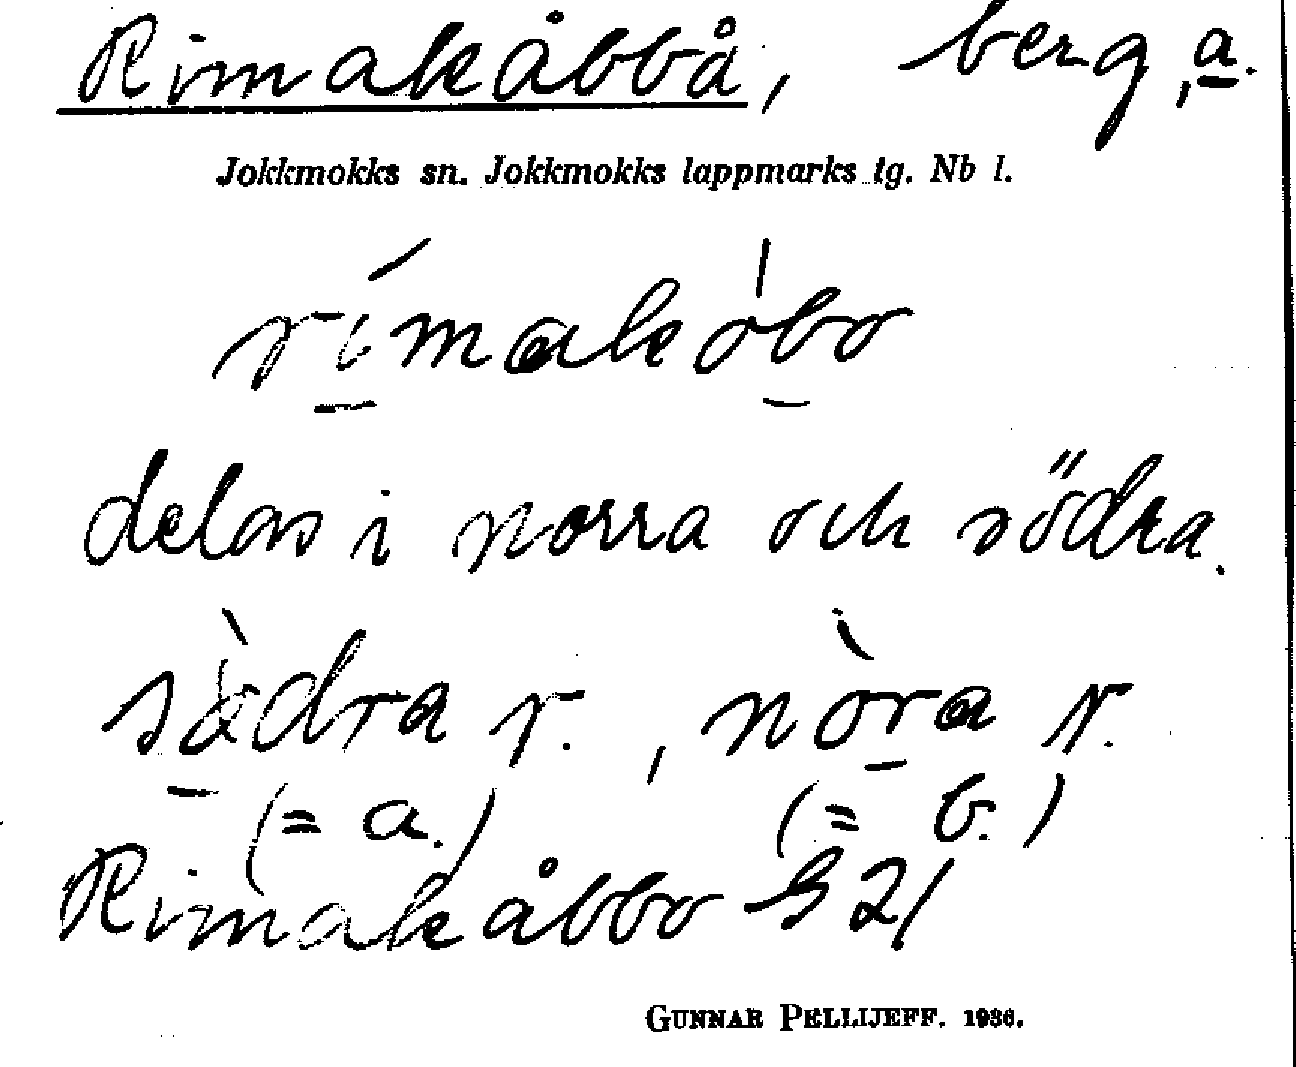 Rimakåbbå, berg, a.
Jokkmokks sn. Jokkmokks lappmarks tg. Nb l.
rímakóbo
delas i norra och södra.
sòdra r., nòra r.
(= a.) (= b.)
Rimakåbbo S 21
GUNNAR PELLIJEFF. 1936.